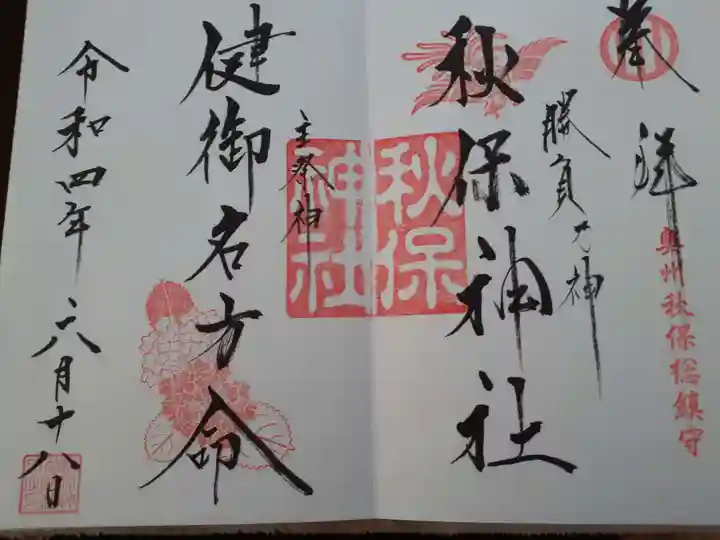 奉拝
奥州秋保総鎮守
勝負大神
秋保神社
秋保
神社
主祭神
健御名方命
令和四年六月十八日